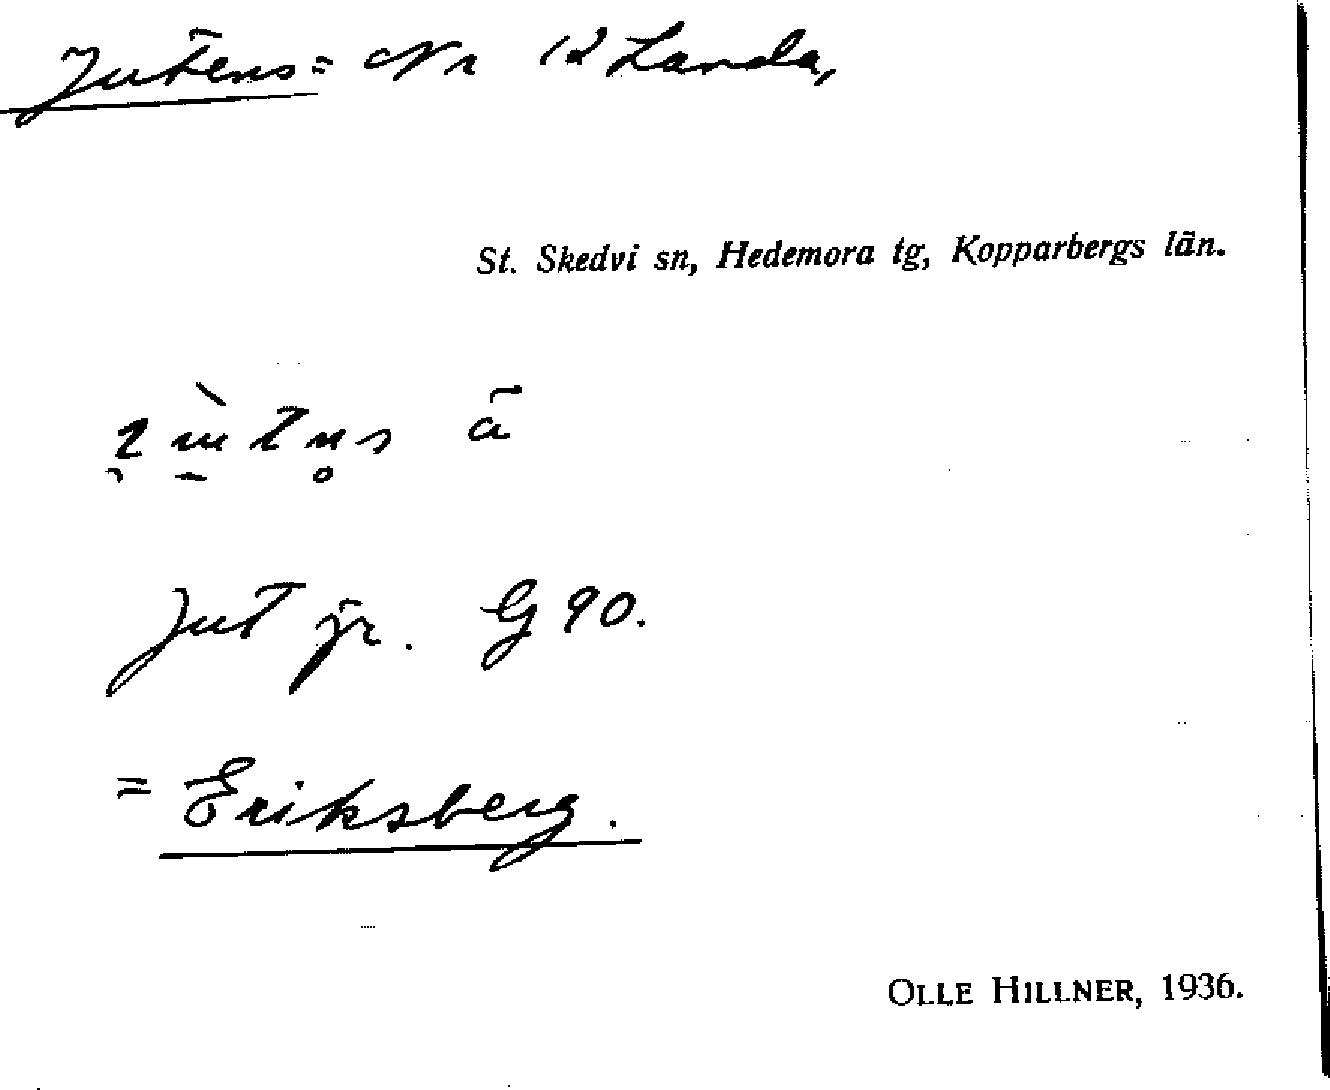 Jutens = Nr 12 Landa,
St. Skedvi sn, Hedemora tg, Kopparbergs län.
ã
Jut fr. G 90.
= Eriksberg.
OLLE HILLNER, 1936.